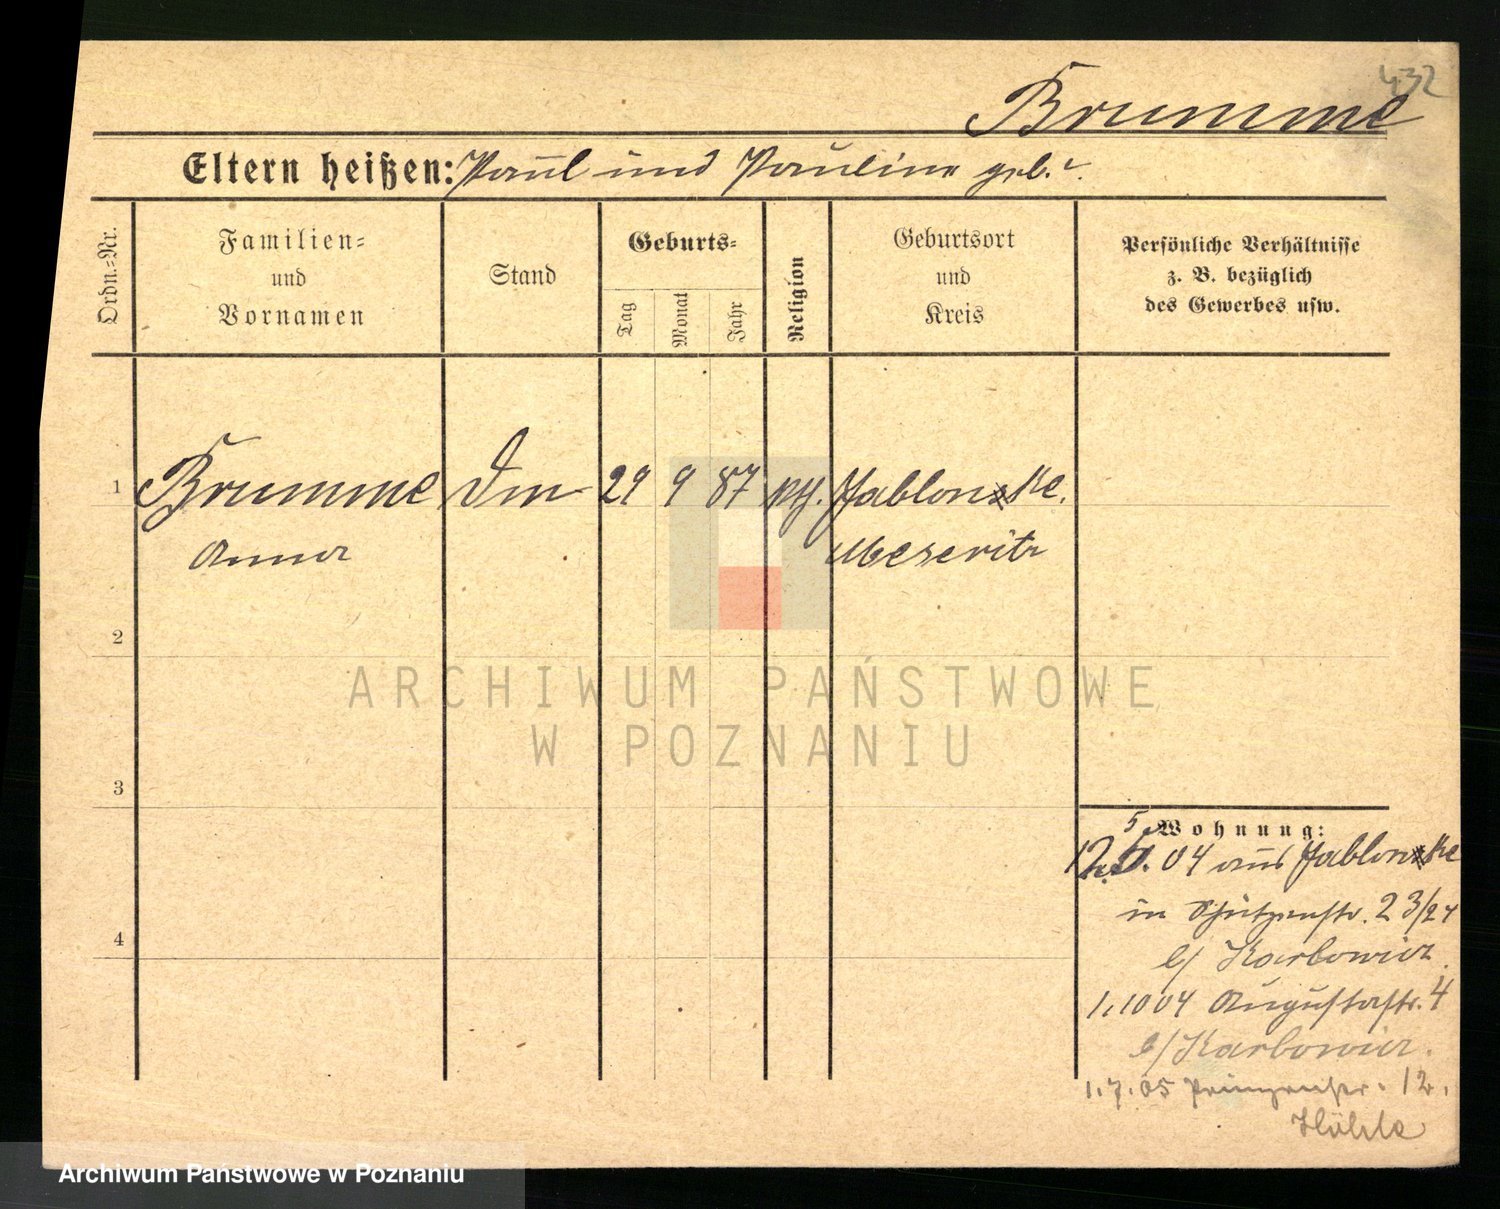 432
Brumme
Eltern heißen: Paul und Pauline geb.
Ordn.-Nr.
Familien- und Vornamen
Stand
Geburts-
Tag
Monat
Jahr
Religion
Geburtsort und Kreis
Persönliche Verhältnisse z. B. bezüglich des Gewerbes usw.
1 Brumme 29 9 87 Jablonke.
Anna Meseritz
2
3
4
Wohnung:
5
12. 04 aus Jablonke
in Schützenstr. 23/24
b/ Karbowicz
1.10 04 Augustastr. 4
b/ Karbowicz.
1.7.05 Prinzenstr. 12.
ARCHIWUM PAŃSTWOWE
W POZNANIU
Archiwum Państwowe w Poznaniu